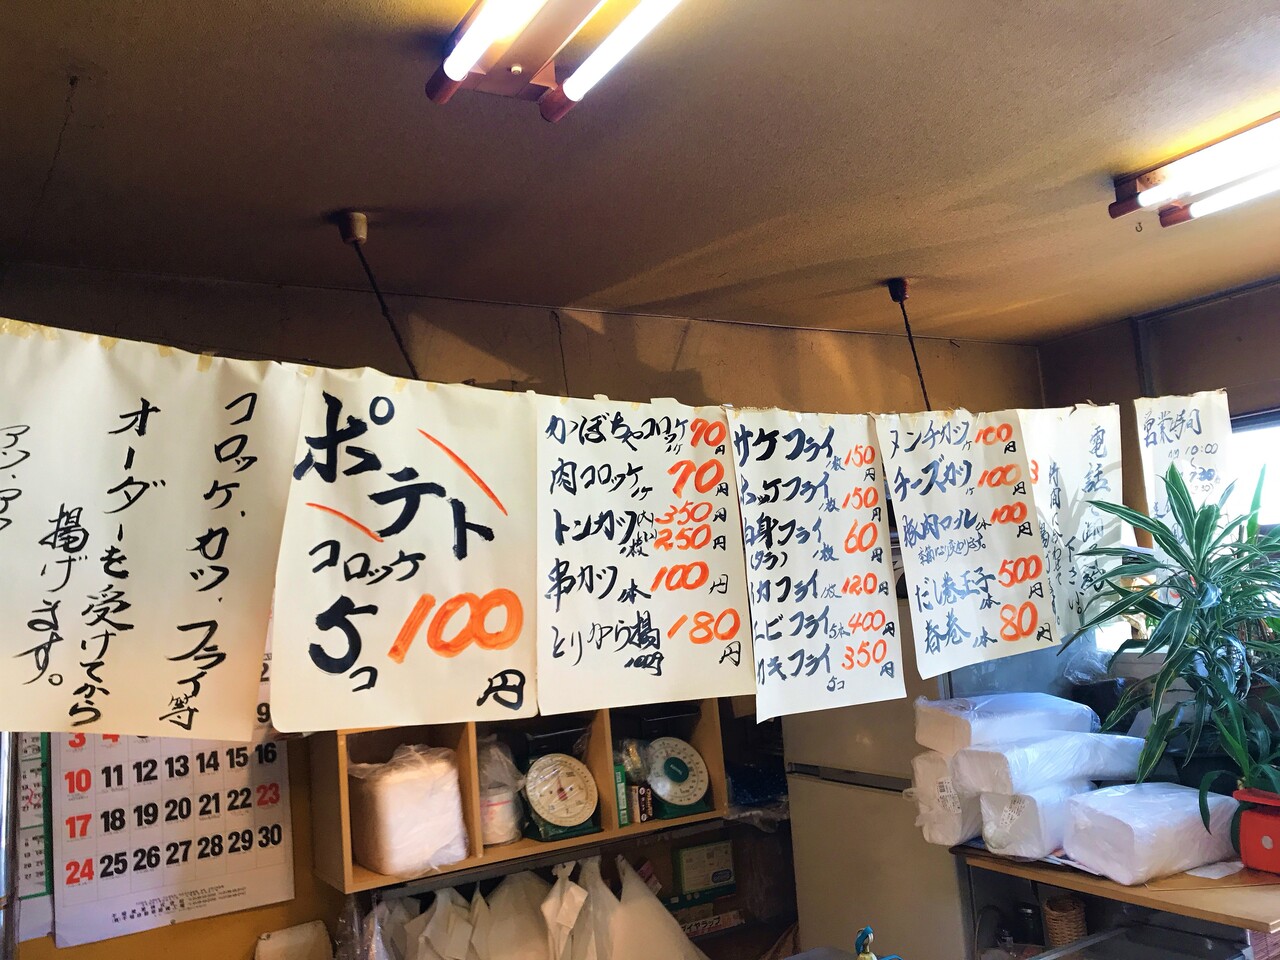 コロッケ、カツ、フライ等
オーダーを受けてから
揚げます。
ポテト
コロッケ
5コ 100円
かぼちゃコロッケ 1ケ 70円
肉コロッケ 1ケ 70円
トンカツ 350円
1枚 250円
串カツ 1本 100円
とりから揚 180円
サケフライ 1枚 150円
ホッケフライ 1枚 150円
白身フライ 1枚 60円
(タラ)
フライ 1枚 120円
エビフライ 5本 400円
カキフライ 5コ 350円
メンチカツ 1ケ 100円
チーズカツ 1ケ 100円
豚肉ロール 1本 100円
だし巻玉子 1本 500円
春巻 1本 80円
電話
下さい。
営業時間
10:00
9
3 4
10 11 12 13 14 15 16
17 18 19 20 21 22 23
24 25 26 27 28 29 30